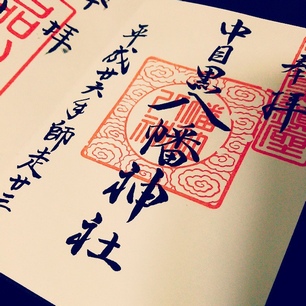 奉拝
中目黒
八幡神社
平成廿六年師走廿三
拝